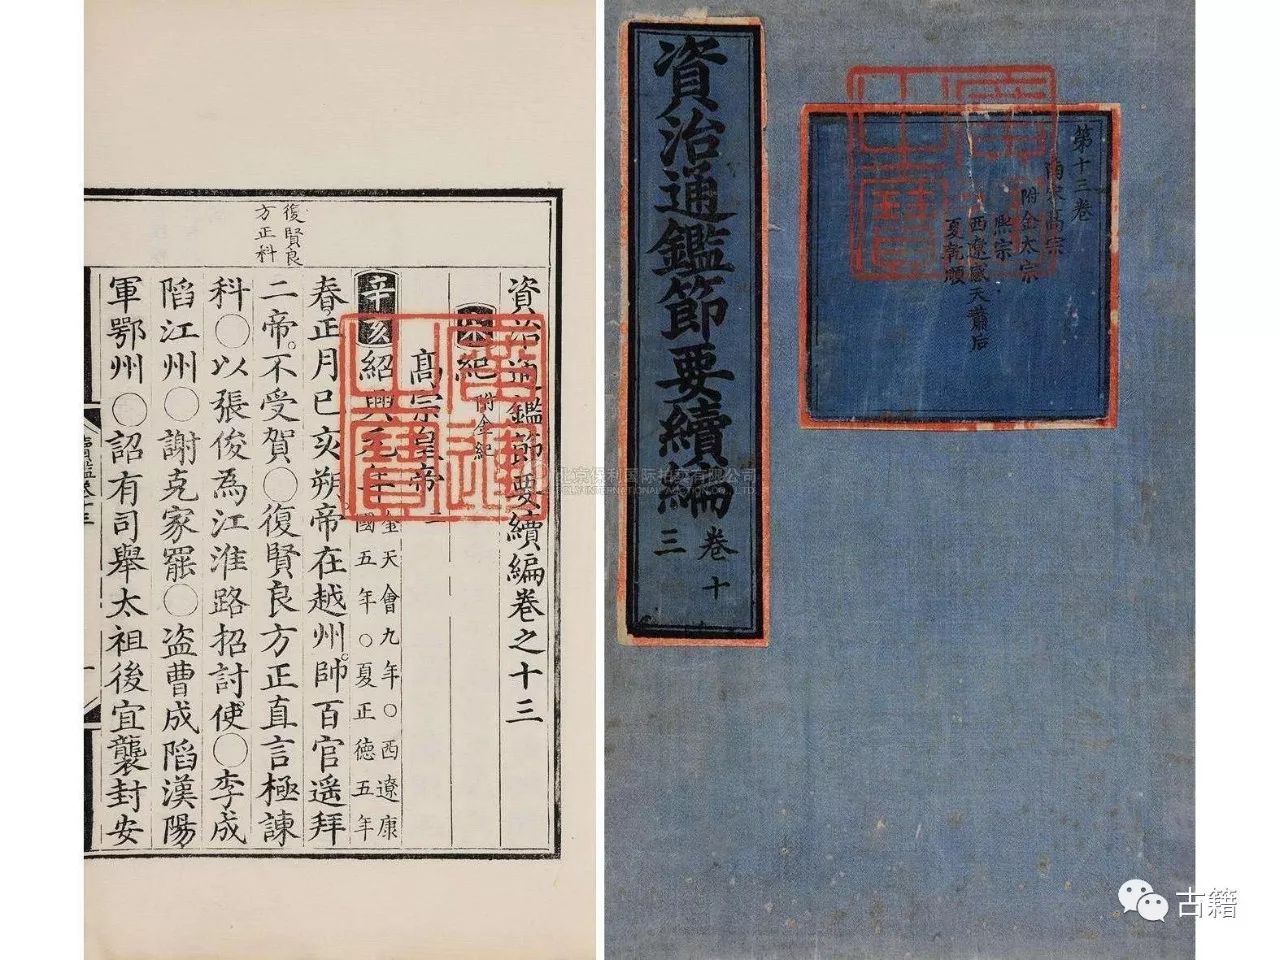 資治通鑑節要續編卷之十三
宋紀 附金紀
高宗皇帝 二
辛亥紹興元年 金天會九年〇西遼康
國五年〇夏正德五年
春正月巳亥朔帝在越州帥百官遥拜
二帝不受賀〇復賢良方正直言極諫
科〇以張俊為江淮路招討使〇李成
陷江州〇謝克家罷〇盗曹成陷漢陽
軍鄂州〇詔有司舉太祖後宜襲封安
復賢良
方正科
續鑑卷十三
資治通鑑節要續編
卷十
三
第十三卷
南宋高宗
附金太宗
熙宗
西遼感天蕭后
夏乾順
北京保利国际拍卖有限公司
古籍